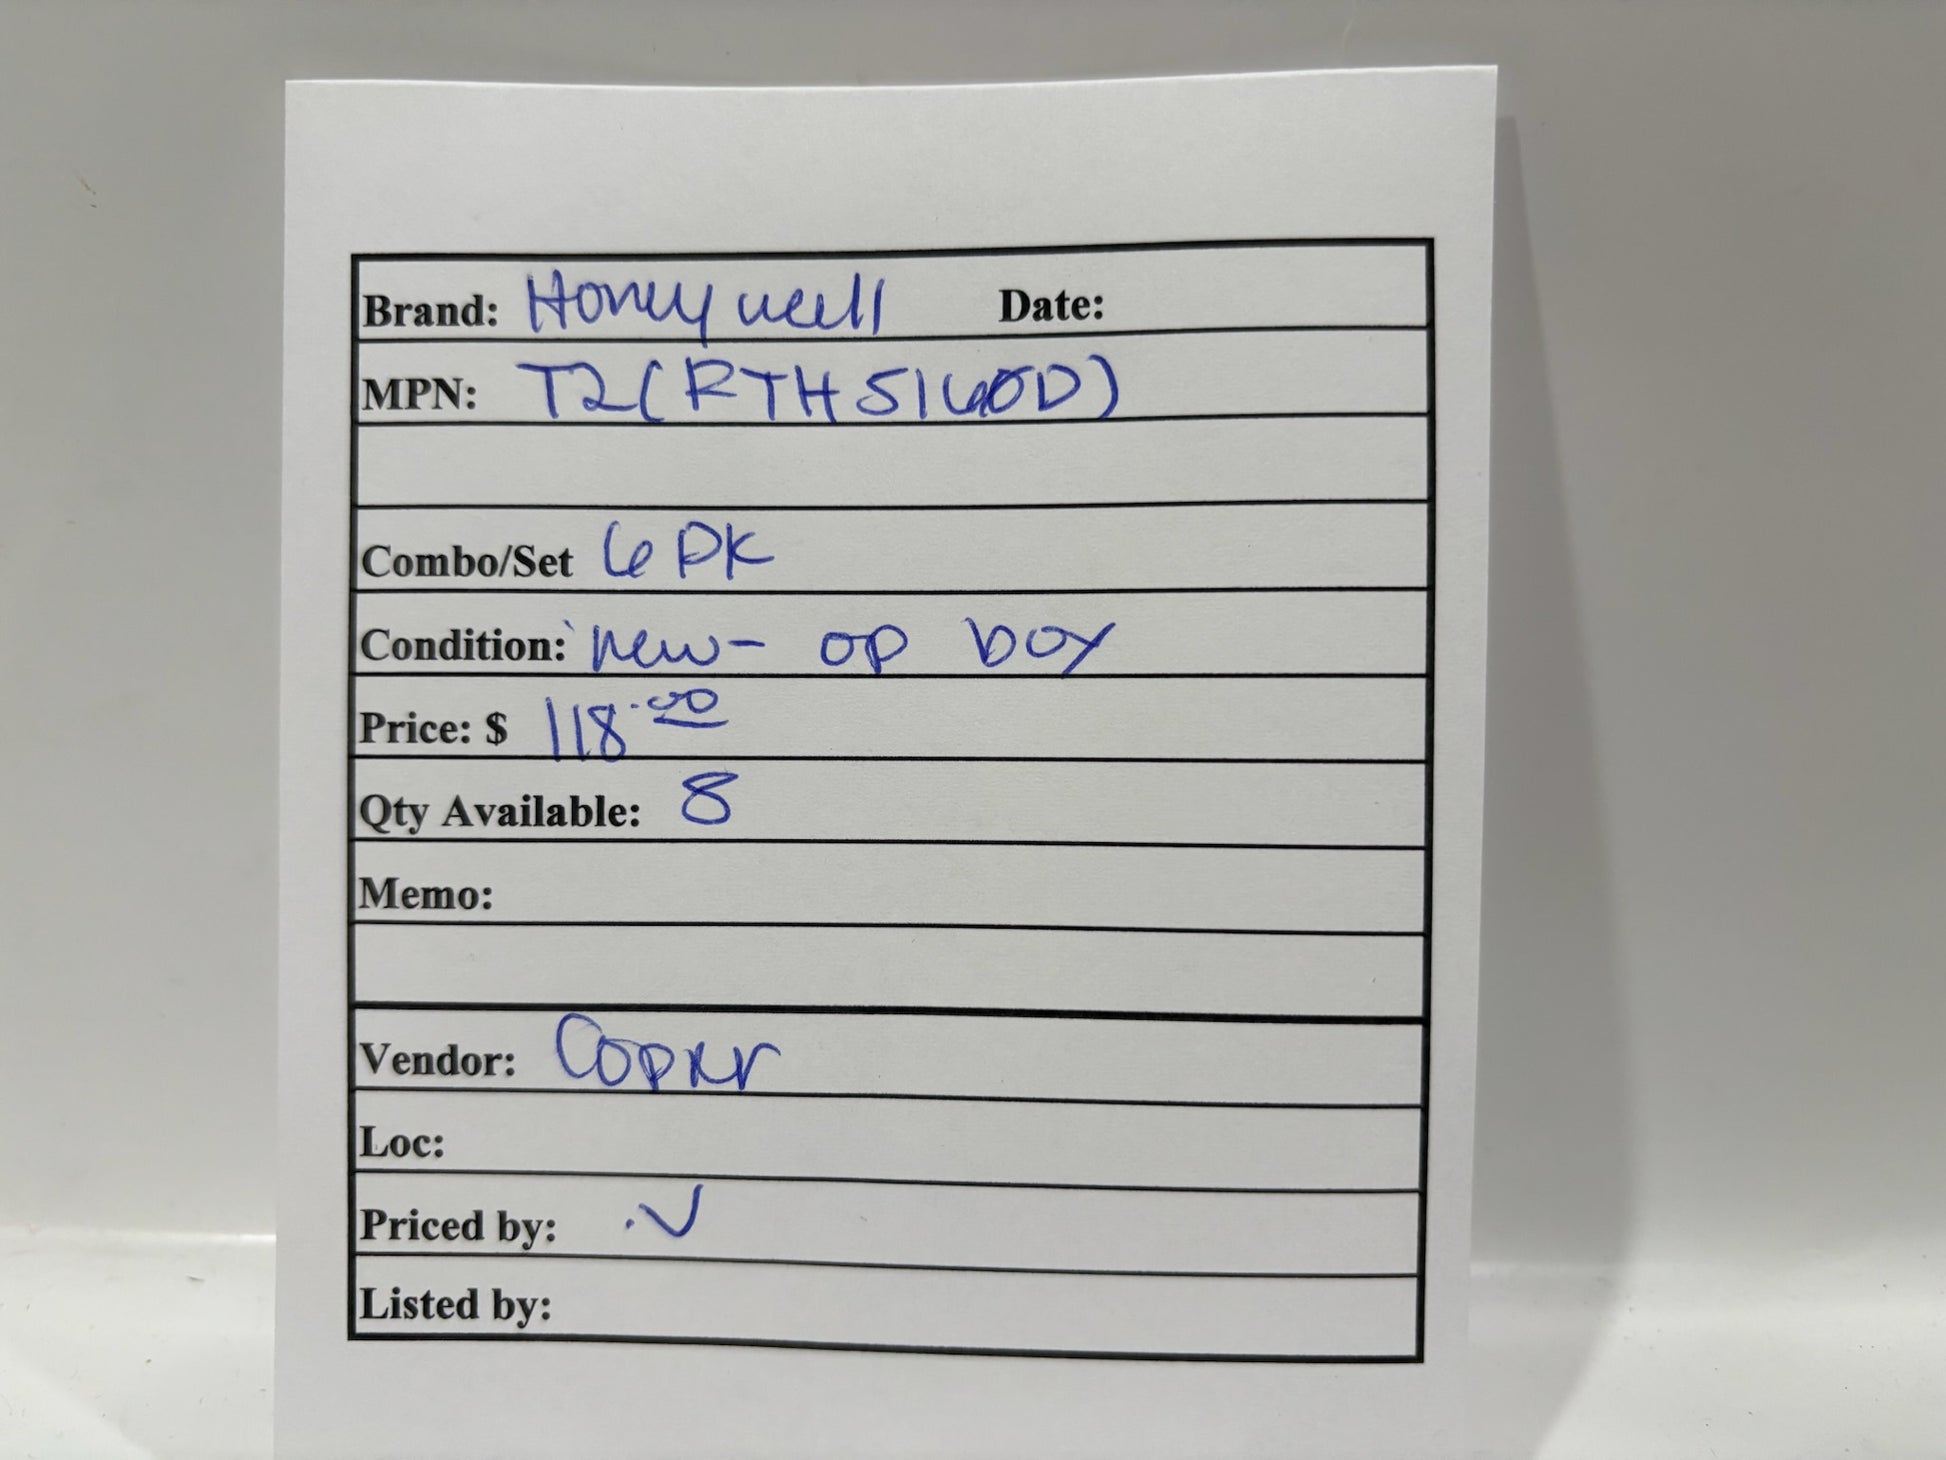 Brand: Honeywell Date:
MPN: T2(RTH5160D)
Combo/Set 6 PK
Condition: new- op box
Price: $ 118.00
Qty Available: 8
Memo:
Vendor:
Loc:
Priced by: .V
Listed by: